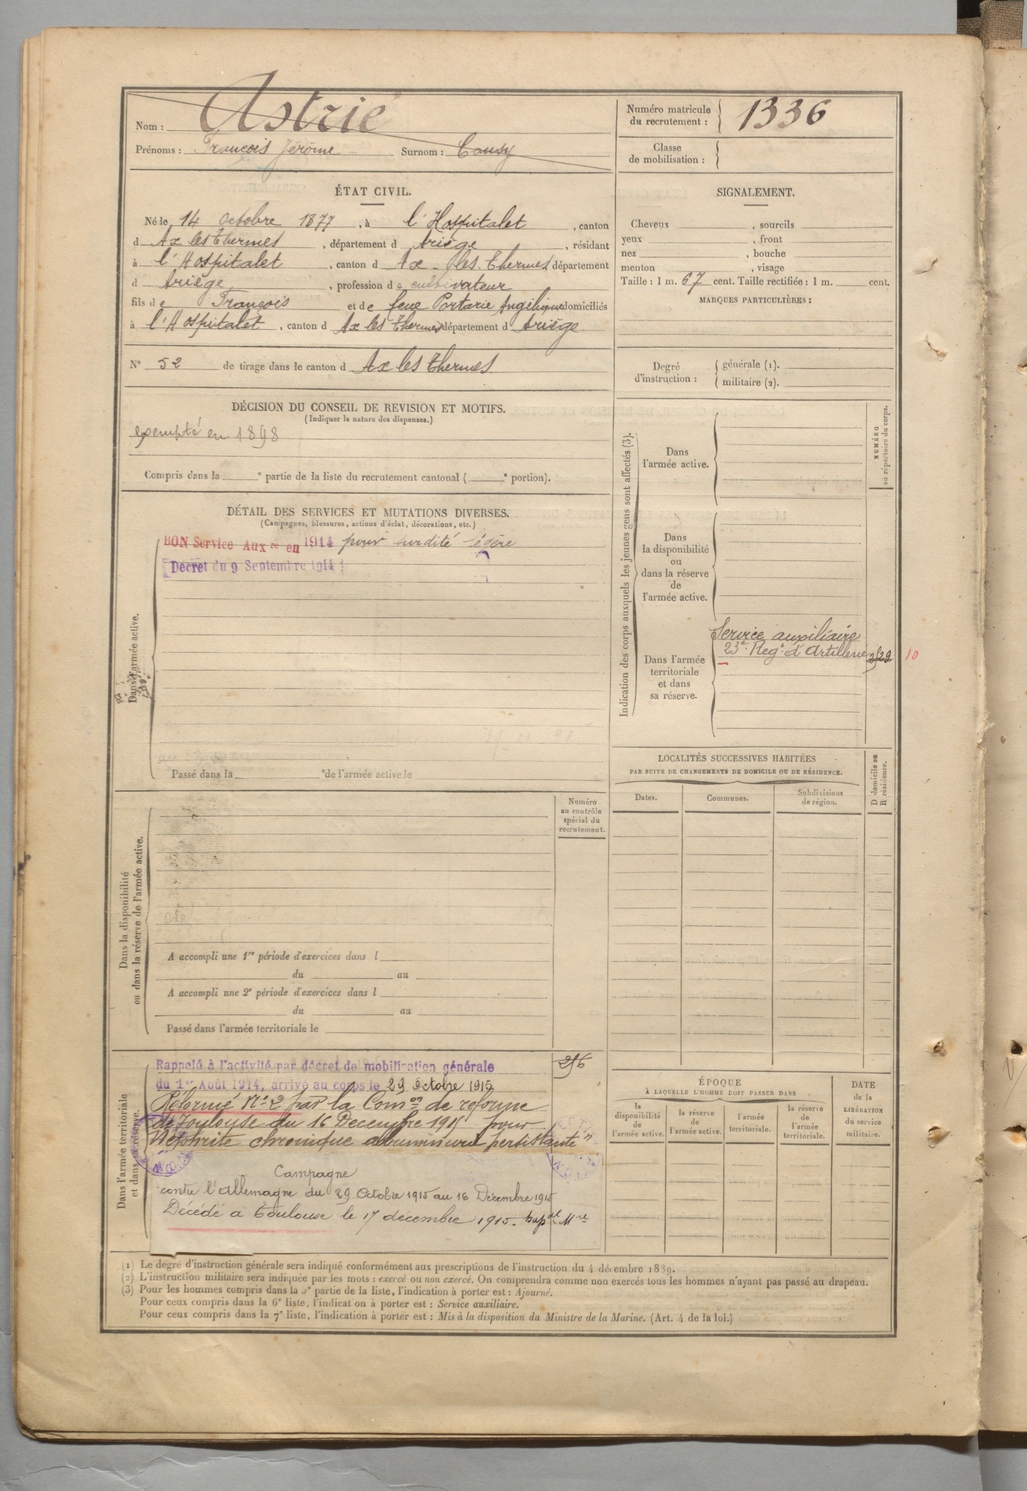 Nom : Astrié
Prénoms : François Jérôme Surnom : Cousy
Numéro matricule
du recrutement : 1336
Classe
de mobilisation :
ÉTAT CIVIL.
Né le 14 Octobre 1877, à l'Hospitalet, canton
d Ax les Thermes, département d Ariège, résidant
à l'Hospitalet, canton d Ax les Thermes département
d Ariège, profession de cultivateur
fils de François et de feue Portarie Angélique domiciliés
à l'Hospitalet, canton d Ax les Thermes département d Ariège
N° 52 de tirage dans le canton d Ax les Thermes
SIGNALEMENT.
Cheveux , sourcils
yeux , front
nez , bouche
menton , visage
Taille : 1 m. 67 cent. Taille rectifiée : 1 m. cent.
MARQUES PARTICULIÈRES :
Degré
d'instruction :
générale (1).
militaire (2).
DÉCISION DU CONSEIL DE REVISION ET MOTIFS.
(Indiquer la nature des dispenses.)
exempté en 1898
Compris dans la e partie de la liste du recrutement cantonal ( e portion).
DÉTAIL DES SERVICES ET MUTATIONS DIVERSES.
(Campagnes, blessures, actions d'éclat, décorations, etc.)
BON Service Aux re en 1914 pour surdité légère
Décret du 9 Septembre 1914
Dans l'armée active.
Passé dans la e de l'armée active le
Indication des corps auxquels les jeunes gens sont affectés (3).
Dans
l'armée active.
NUMÉRO
au répertoire du corps.
Dans
la disponibilité
ou
dans la réserve
de
l'armée active.
Dans l'armée
territoriale
et dans
sa réserve.
Service auxiliaire
23e Regt d'Artillerie
10
LOCALITÉS SUCCESSIVES HABITÉES
PAR SUITE DE CHANGEMENTS DE DOMICILE OU DE RÉSIDENCE.
D domicile ou
R résidence.
Dates.
Communes.
Subdivisions
de région.
Numéro
au contrôle
spécial du
recrutement.
Dans la disponibilité
ou dans la réserve de l'armée active.
A accompli une 1re période d'exercices dans l
du au
A accompli une 2e période d'exercices dans l
du au
Passé dans l'armée territoriale le
Dans l'armée territoriale
et dans sa réserve.
Rappelé à l'activité par décret de mobilisation générale
du 1er Août 1914, arrivé au corps le 29 Octobre 1915
Réformé N° 2 par la Comon de réforme
de Toulouse du 16 Décembre 1915 pour
Néphrite chronique albuminurie persistante
Campagne
contre l'Allemagne du 29 Octobre 1915 au 16 Décembre 1915
Décédé à Toulouse le 17 décembre 1915.
ÉPOQUE
À LAQUELLE L'HOMME DOIT PASSER DANS
la
disponibilité
de
l'armée active.
la réserve
de
l'armée active.
l'armée
territoriale.
la réserve
de
l'armée
territoriale.
DATE
de la
LIBÉRATION
du service
militaire.
(1) Le degré d'instruction générale sera indiqué conformément aux prescriptions de l'instruction du 4 décembre 1889.
(2) L'instruction militaire sera indiquée par les mots : exercé ou non exercé. On comprendra comme non exercés tous les hommes n'ayant pas passé au drapeau.
(3) Pour les hommes compris dans la 5e partie de la liste, l'indication à porter est : Ajourné.
Pour ceux compris dans la 6e liste, l'indication à porter est : Service auxiliaire.
Pour ceux compris dans la 7e liste, l'indication à porter est : Mis à la disposition du Ministre de la Marine. (Art. 4 de la loi.)